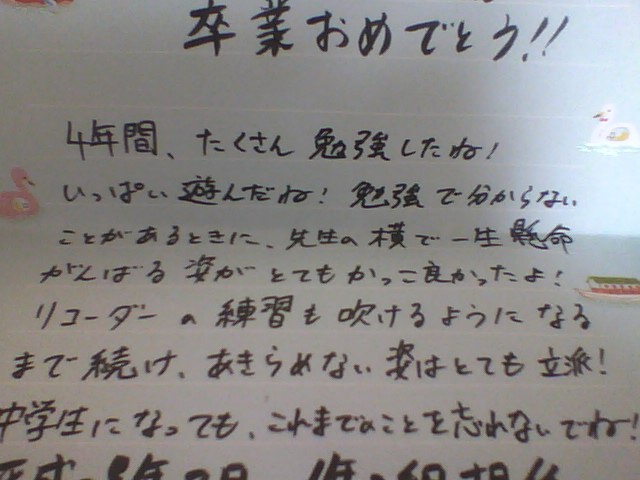 卒業おめでとう!!
4年間、たくさん勉強したね!
いっぱい遊んだね! 勉強で分からない
ことがあるときに、先生の横で一生懸命
がんばる姿がとてもかっこ良かったよ!
リコーダーの練習も吹けるようになる
まで続け、あきらめない姿はとても立派!
中学生になっても、これまでのことを忘れないでね!